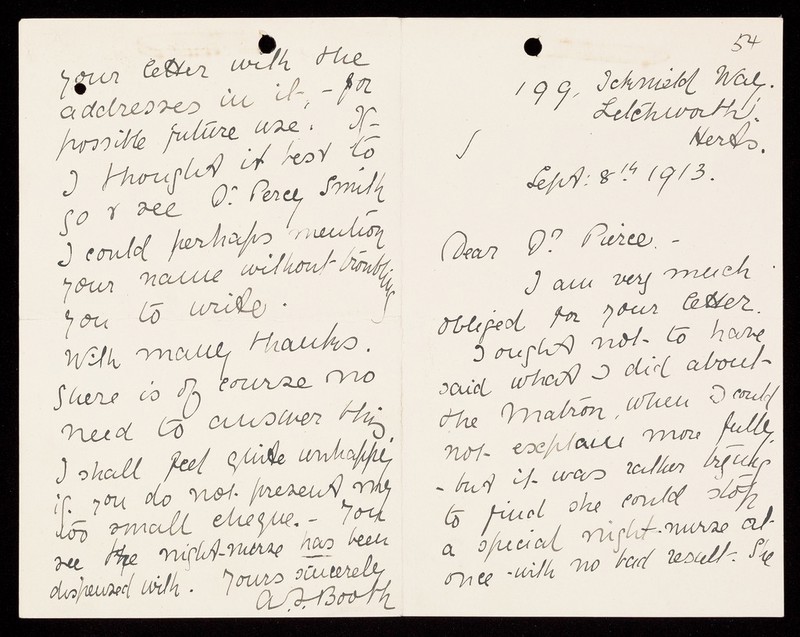 54
199, Icknield Way.
Letchworth.
Herts.
Sept: 8th 1913.
Dear Dr Pierce. -
I am very much
obliged for your letter.
I ought not to have
said what I did about
the Matron, when I could
not explain more fully,
- but it was rather trying
to find she could stop
a special night-nurse at
once - with no bad result. She
your letter with the
addresses in it, - for
possible future use. If
I thought it best to
go & see Dr Percy Smith
I could perhaps mention
your name without troubling
you to write.
With many thanks.
There is of course no
need to answer this,
I shall feel quite unhappy
if you do not present my
too small cheque. - You
see the night-nurse has been
dispensed with. Yours sincerely
A. J. Booth